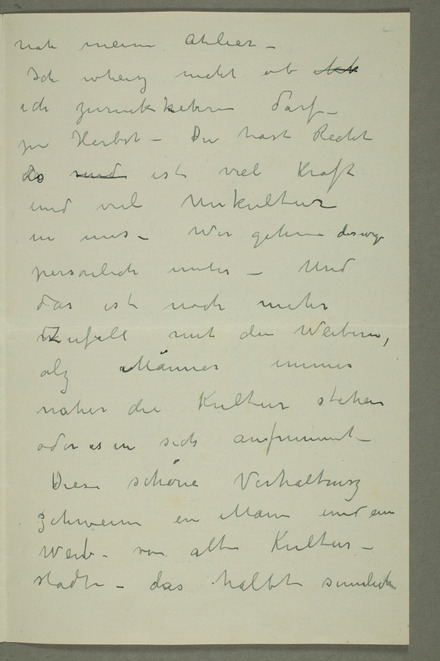 nah meine Atelier –
Ich weisz nicht ob
ich zurückkehren darf –
zu Herbst – Du hast Recht
es ist viel Kraft
und viel Unkultur
in uns – Wir gehen deswegen
persönlich unter – Und
das ist noch mehr
mit den Weibern,
alz Männer immer
näher die Kultur stehen
oder es in sich aufnimmt –
Diese schöne Verhaltung
zwischen ein Mann und ein
Weib – von alte Kultur –
stadte – das halbt sinnliche